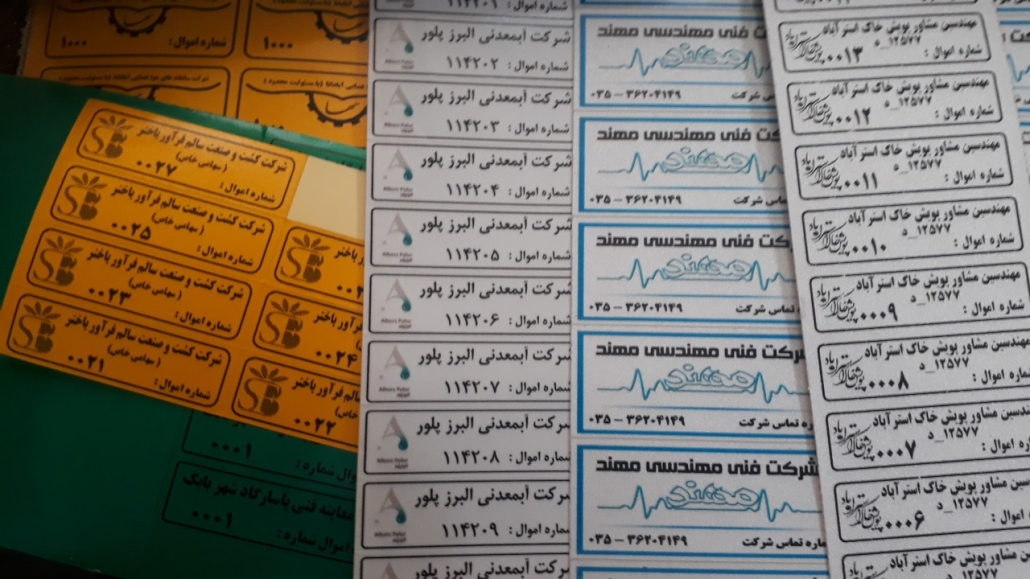 شماره اموال :
۱۰۰۰
۱۰۰۰
شرکت کشت و صنعت سالم فرآور باختر
(سهامی خاص)
۰۰۲۷
شماره اموال :
شرکت کشت و صنعت سالم فرآور باختر
(سهامی خاص)
۰۰۲۵
شماره اموال :
شرکت کشت و صنعت سالم فرآور باختر
(سهامی خاص)
۰۰۲۳
شماره اموال :
شرکت کشت و صنعت سالم فرآور باختر
(سهامی خاص)
۰۰۲۱
شماره اموال :
۰۰۲۴
۰۰۲۲
۰۰۰۱
وال شماره :
معاینه فنی پاسارگاد شهر بابک
۰۰۰۱
اموال شماره :
شماره اموال : ۱۱۴۲۰۱
شرکت آبمعدنی البرز پلور
شماره اموال : ۱۱۴۲۰۲
شرکت آبمعدنی البرز پلور
شماره اموال : ۱۱۴۲۰۳
شرکت آبمعدنی البرز پلور
شماره اموال : ۱۱۴۲۰۴
شرکت آبمعدنی البرز پلور
شماره اموال : ۱۱۴۲۰۵
شرکت آبمعدنی البرز پلور
شماره اموال : ۱۱۴۲۰۶
شرکت آبمعدنی البرز پلور
شماره اموال : ۱۱۴۲۰۷
شرکت آبمعدنی البرز پلور
شماره اموال : ۱۱۴۲۰۸
شرکت آبمعدنی البرز پلور
شماره اموال : ۱۱۴۲۰۹
شرکت آبمعدنی البرز پلور
فنی مهندسی مهند
مهند
شرکت ۰۳۵ – ۳۶۲۰۴۱۴۹
فنی مهندسی مهند
مهند
شرکت ۰۳۵ – ۳۶۲۰۴۱۴۹
کت فنی مهندسی مهند
مهند
تماس شرکت ۰۳۵ – ۳۶۲۰۴۱۴۹
شرکت فنی مهندسی مهند
مهند
تماس شرکت ۰۳۵ – ۳۶۲۰۴۱۴۹
شرکت فنی مهندسی مهند
مهند
تماس شرکت ۰۳۵ – ۳۶۲۰۴۱۴۹
مهندسین مشاور پویش خاک استرآباد
۱۲۵۷۷_د
شماره اموال : ۰۰۱۳
مهندسین مشاور پویش خاک استرآباد
۱۲۵۷۷_د
شماره اموال : ۰۰۱۲
مهندسین مشاور پویش خاک استرآباد
۱۲۵۷۷_د
شماره اموال : ۰۰۱۱
مهندسین مشاور پویش خاک استرآباد
۱۲۵۷۷_د
شماره اموال : ۰۰۱۰
مهندسین مشاور پویش خاک استرآباد
۱۲۵۷۷_د
شماره اموال : ۰۰۰۹
مهندسین مشاور پویش خاک استرآباد
۱۲۵۷۷_د
اموال : ۰۰۰۸
مهندسین مشاور پویش خاک استرآباد
۱۲۵۷۷_د
اموال : ۰۰۰۷
مشاور پویش خاک استرآباد
۱۲۵۷۷_د
اموال : ۰۰۰۶
مشاور پویش خاک استرآباد
۱۲۵۷۷_د